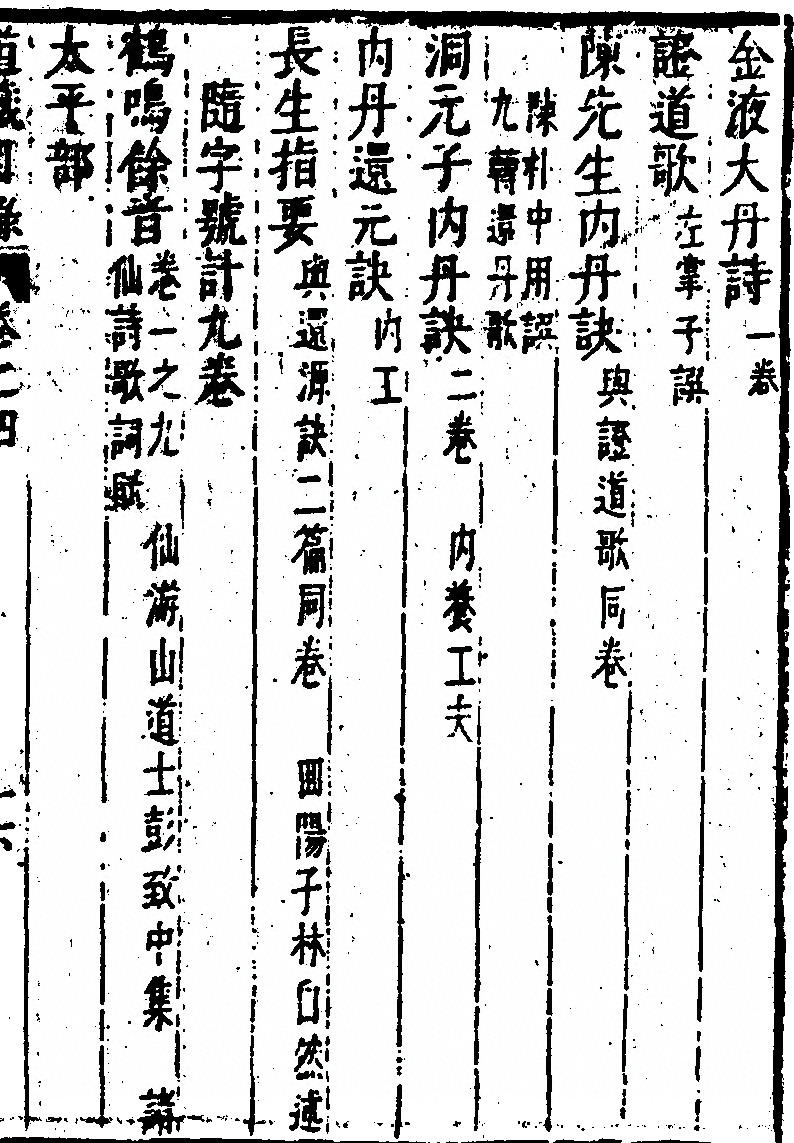 金液大丹詩一卷
證道歌左掌子譔
陳先生內丹訣與證道歌同卷
陳朴中用譔
九轉還丹歌
洞元子內丹訣二卷 內養工夫
內丹還元訣內工
長生指要與還源訣二篇同卷 圓陽子林自然述
隨字號計九卷
鶴鳴餘音卷一之九 仙游山道士彭致中集 諸
仙詩歌詞賦
太平部
卷之四